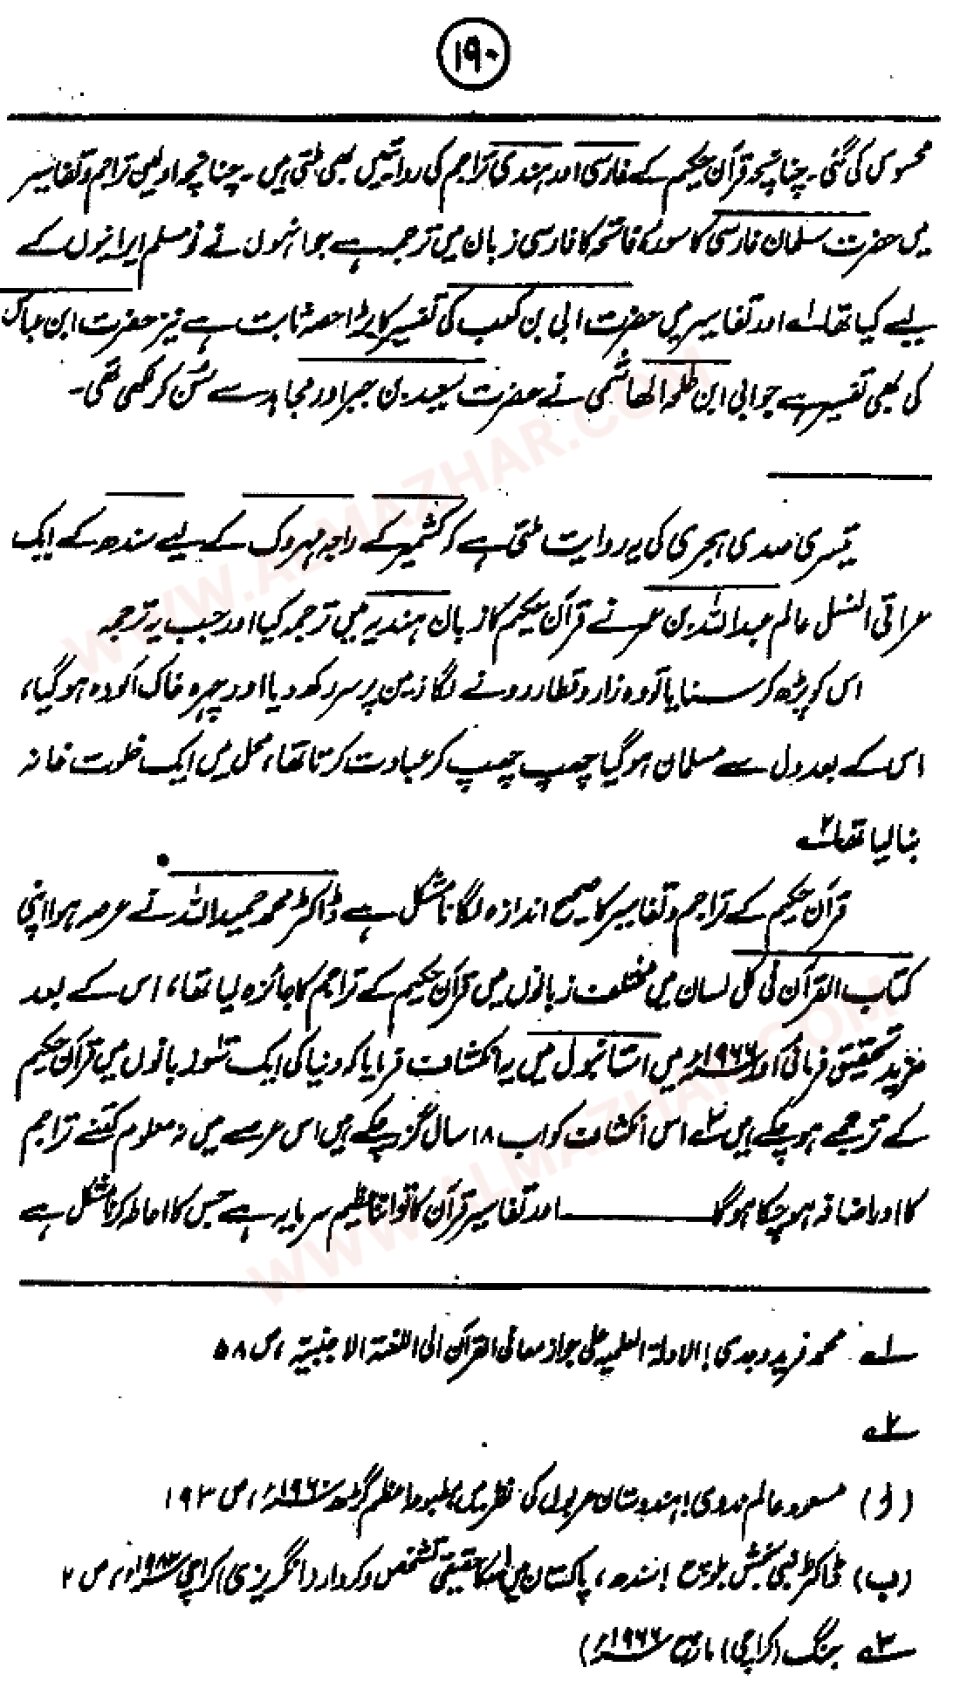 ۱۹۰
محسوس کی گئی۔ چنانچہ قرآن حکیم کے فارسی اور ہندی تراجم کی روائتیں بھی ملتی ہیں۔ چنانچہ اولین تراجم و تفاسیر
میں حضرت سلمان فارسی کا سورۂ فاتحہ کا فارسی زبان میں ترجمہ ہے جو انہوں نے نو مسلم ایرانیوں کے
لیے کیا تھا۱؎ اور تفاسیر میں حضرت ابی بن کعب کی تفسیر کا بڑا حصہ ثابت ہے نیز حضرت ابن عباس
کی بھی تفسیر ہے جو ابی ابن طلحہ الھاشمی نے حضرت سعید بن جبر اور مجاہد سے سُن کر لکھی تھی۔
تیسری صدی ہجری کی یہ روایت ملتی ہے کہ کشمیر کے راجہ مہروک کے لیے سندھ کے ایک
عراقی النسل عالم عبداللہ بن عمر نے قرآن حکیم کا زبان ہندیہ میں ترجمہ کیا اور جب یہ ترجمہ
اس کو پڑھ کر سنایا تو وہ زار و قطار رونے لگا زمین پر سر رکھ دیا اور چہرہ خاک آلودہ ہو گیا،
اس کے بعد دل سے مسلمان ہو گیا چھپ چھپ کر عبادت کرتا تھا، محل میں ایک خلوت خانہ
بنا لیا تھا۲؎
قرآن حکیم کے تراجم و تفاسیر کا صحیح اندازہ لگانا مشکل ہے ڈاکٹر محمد حمید اللہ نے عرصہ ہوا اپنی
کتاب القرآن فی کل لسان میں مختلف زبانوں میں قرآن حکیم کے تراجم کا جائزہ لیا تھا، اس کے بعد
مزید تحقیق فرمائی اور ۱۹۶۶ء میں استانبول میں یہ انکشاف فرمایا کہ دنیا کی ایک سَو زبانوں میں قرآن حکیم
کے ترجمے ہو چکے ہیں۳؎ اس انکشاف کو اب ۱۸ سال گزر چکے ہیں اس عرصے میں نہ معلوم کتنے تراجم
کا اور اضافہ ہو چکا ہوگا ——— اور تفاسیر قرآن کا تو اتنا عظیم سرمایہ ہے جس کا احاطہ کرنا مشکل ہے
۱؎ محمد فرید وجدی؛ الادلۃ العلمیہ علی جواز معانی القرآن الی اللغۃ الاجنبیۃ، ص ۵۸
۲؎
(ا) مسعود عالم ندوی؛ ہندوستان عربوں کی نظر میں، مطبوعہ اعظم گڑھ ۱۹۶۰ء، ص ۱۹۳
(ب) ڈاکٹر نبی بخش بلوچ؛ سندھ، پاکستان میں اسکا حقیقی تشخص و کردار (انگریزی) کراچی ۱۹۸۳ء، ص ۲
۳؎ جنگ (کراچی) مارچ ۱۹۶۶ء)
WWW.ALMAZHAR.COM
WWW.ALMAZHAR.COM